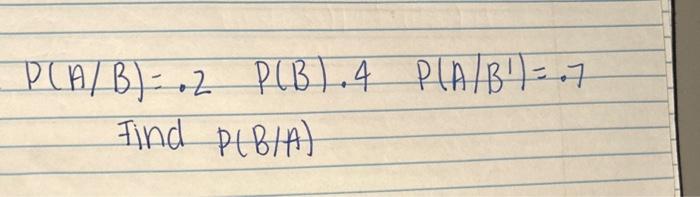 P(A/B)=.2 P(B).4 P(A/B')=.7
Find P(B/A)